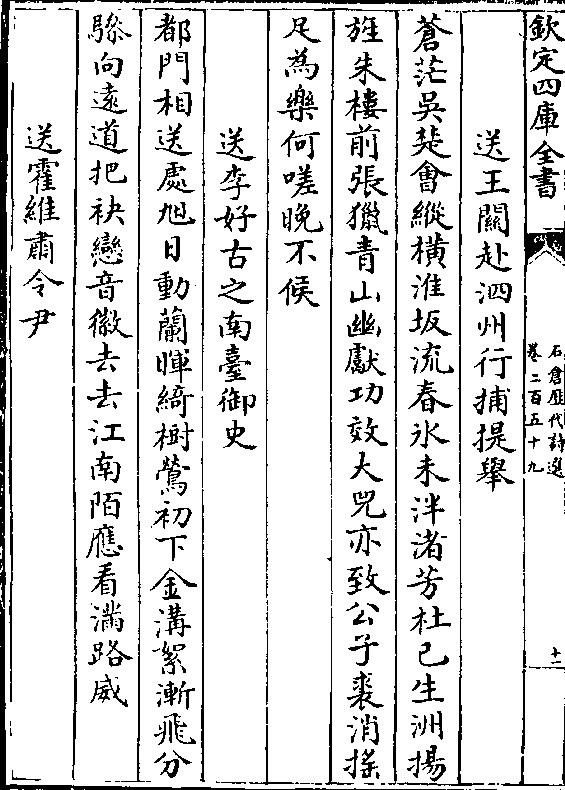 欽定四庫全書
石倉歷代詩選
卷二百五十九
十一
送王闗赴泗州行捕提舉
蒼茫吳楚會縱横淮坂流春氷未泮渚芳杜已生洲揚
旌朱樓前張獵青山幽獻功效大兕亦致公子裘消摇
足為樂何嗟晚不侯
送李好古之南臺御史
都門相送處旭日動蘭暉綺樹鶯初下金溝絮漸飛分
驂向遠道把袂戀音徽去去江南陌應看滿路威
送霍維肅令尹